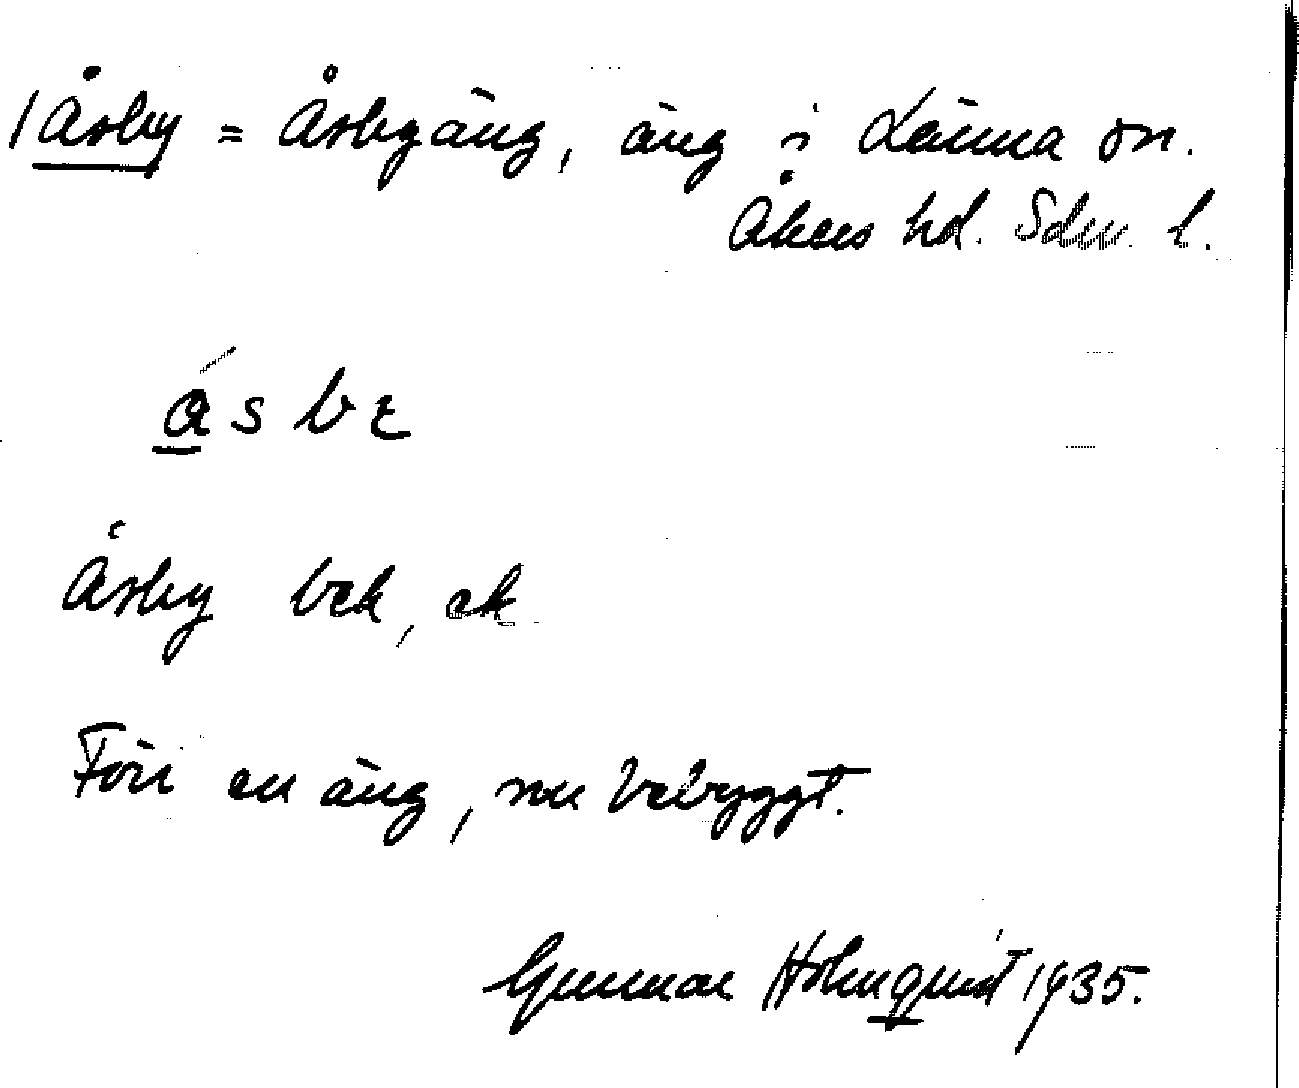 /Åsby = Åsbyäng, äng i Länna sn.
Åkers hd. Sdm. l.
åsbε
Åsby bek, ek
Förr en äng, nu bebyggt.
Gunnar Holmquist 1935.